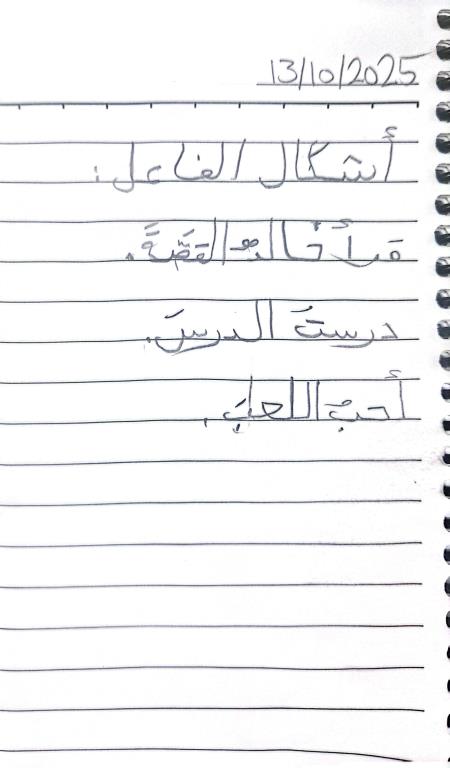 13/10/2025
أشكال الفاعل:
قرأ خالدٌ القصَّةَ.
درستُ الدرسَ.
أحبُّ اللعبَ.